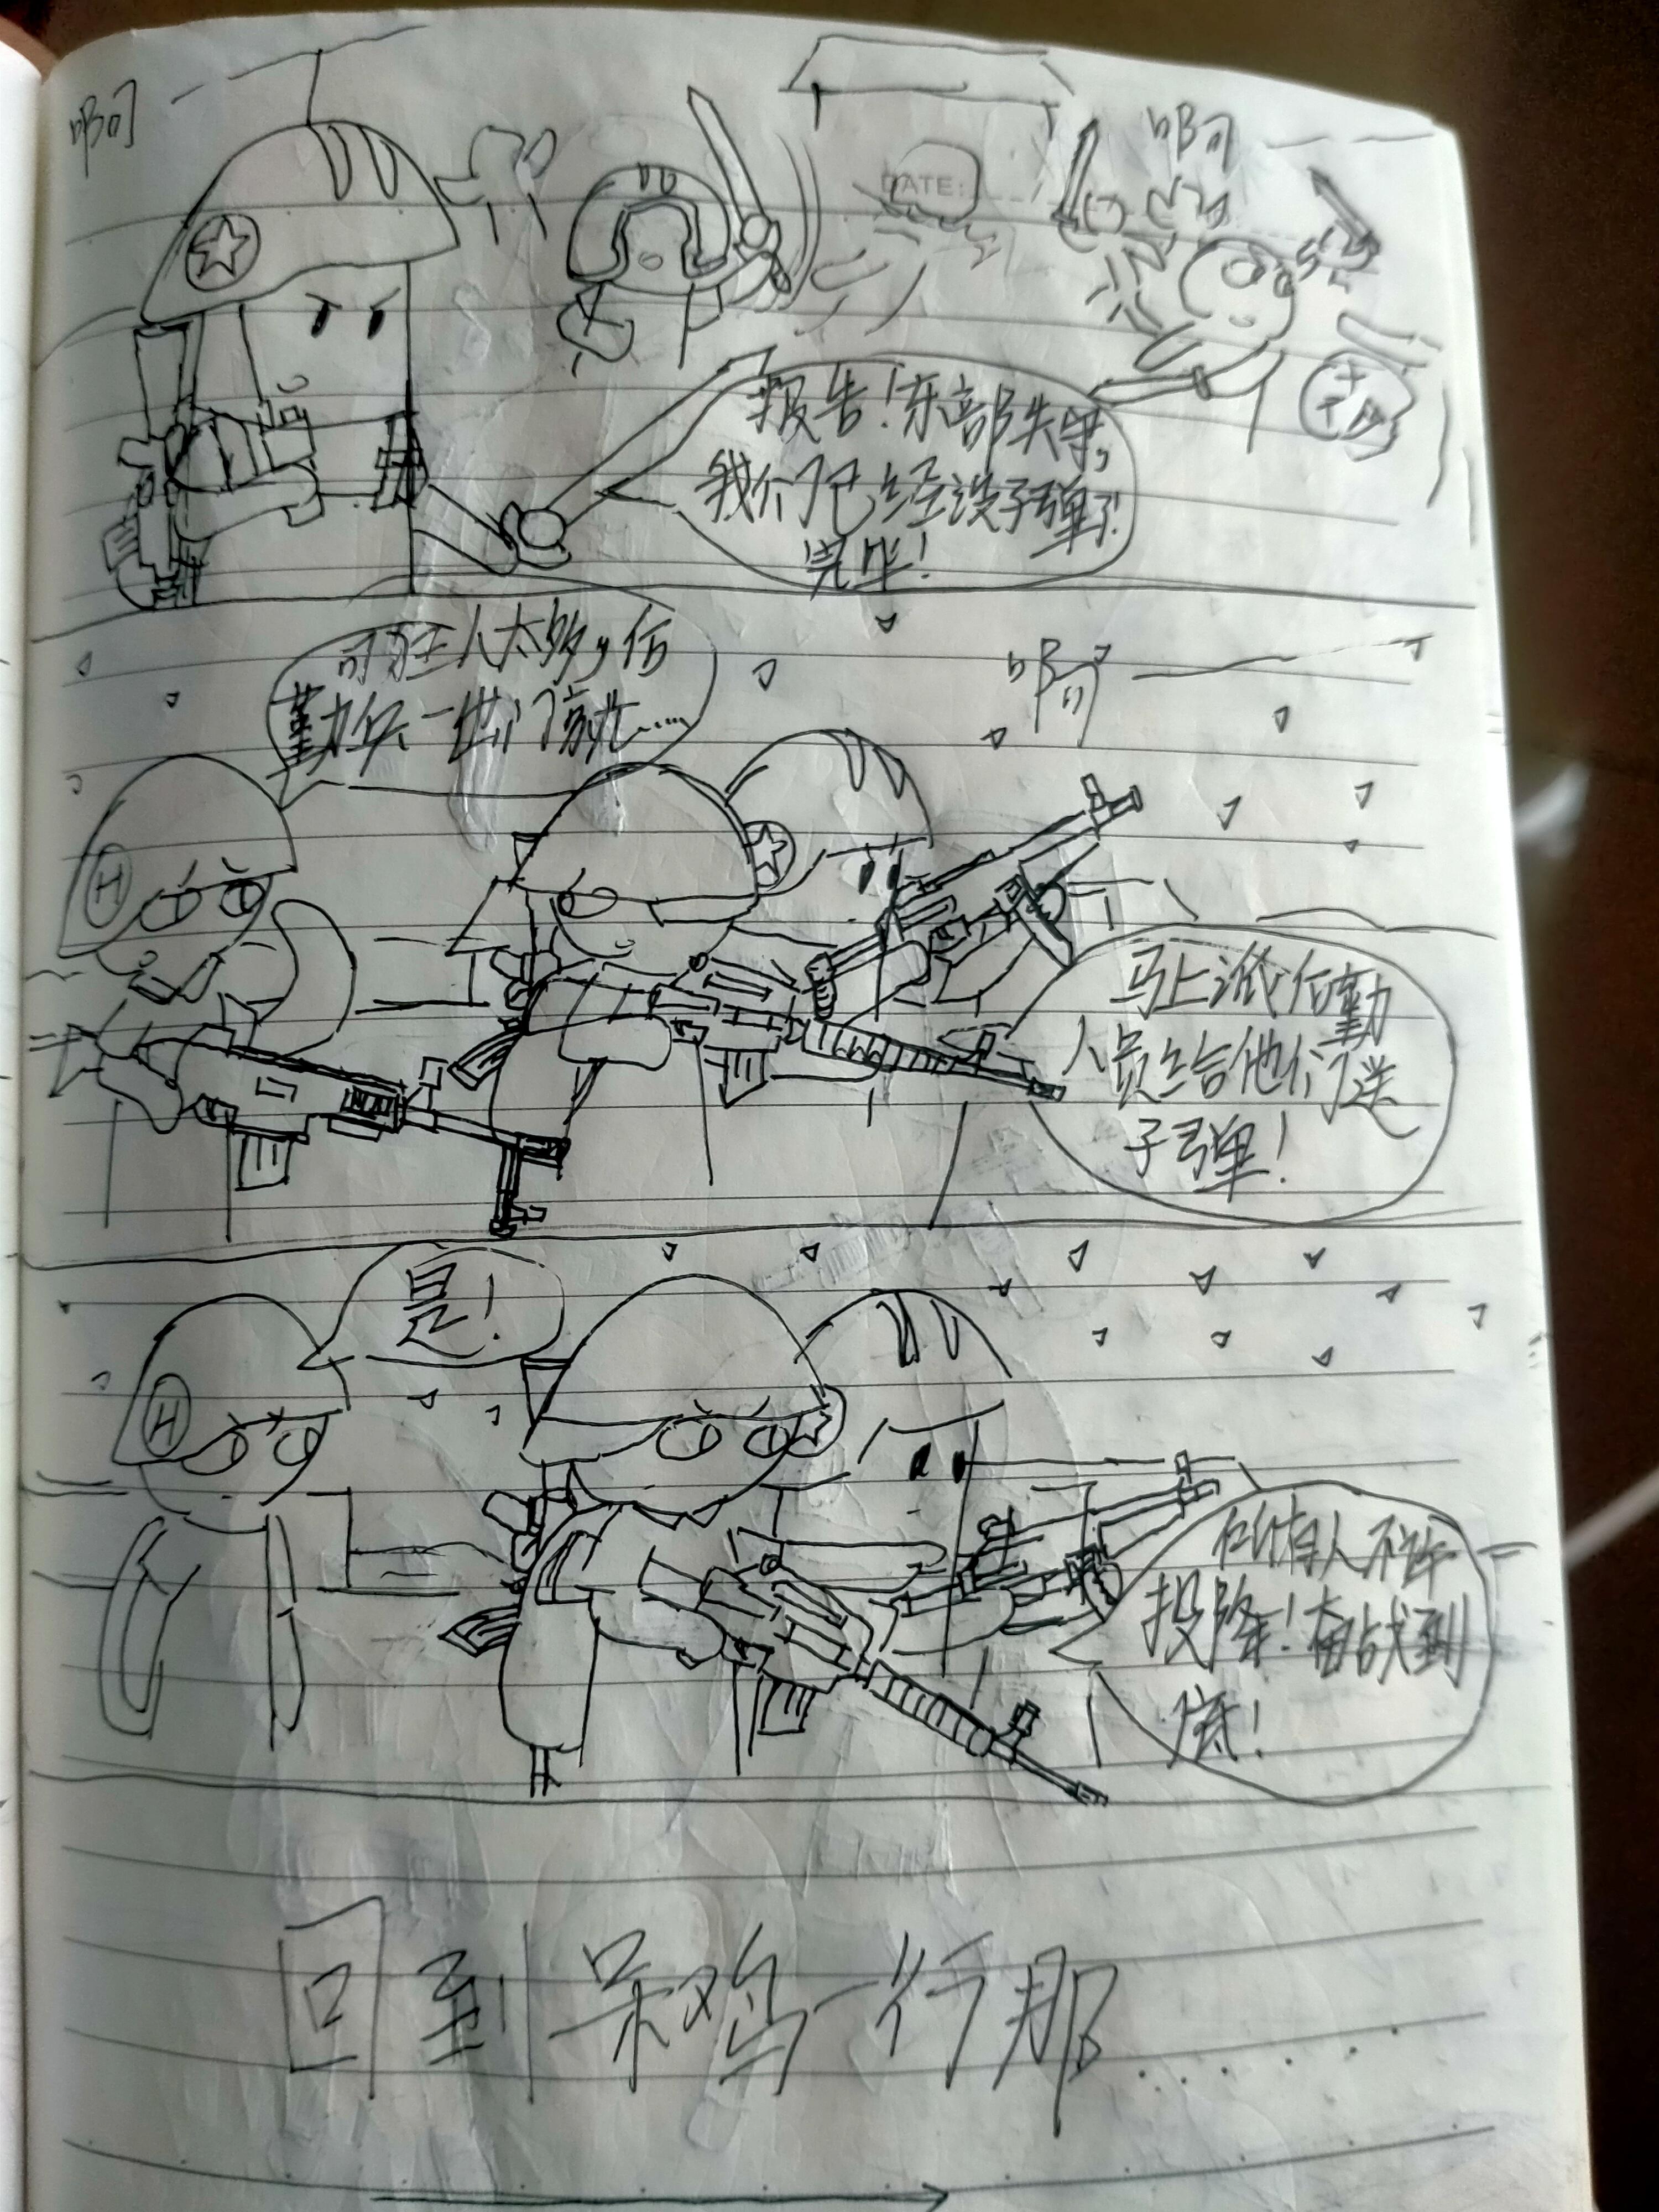 啊
啊
DATE:
报告！东部失守，
我们已经没子弹了！
完毕！
可狂人太多，后
勤兵一出门就……
啊
H
马上派后勤
人员给他们送
子弹！
是！
H
所有人不许
投降！奋战到
底！
回到呆鸡一行那……